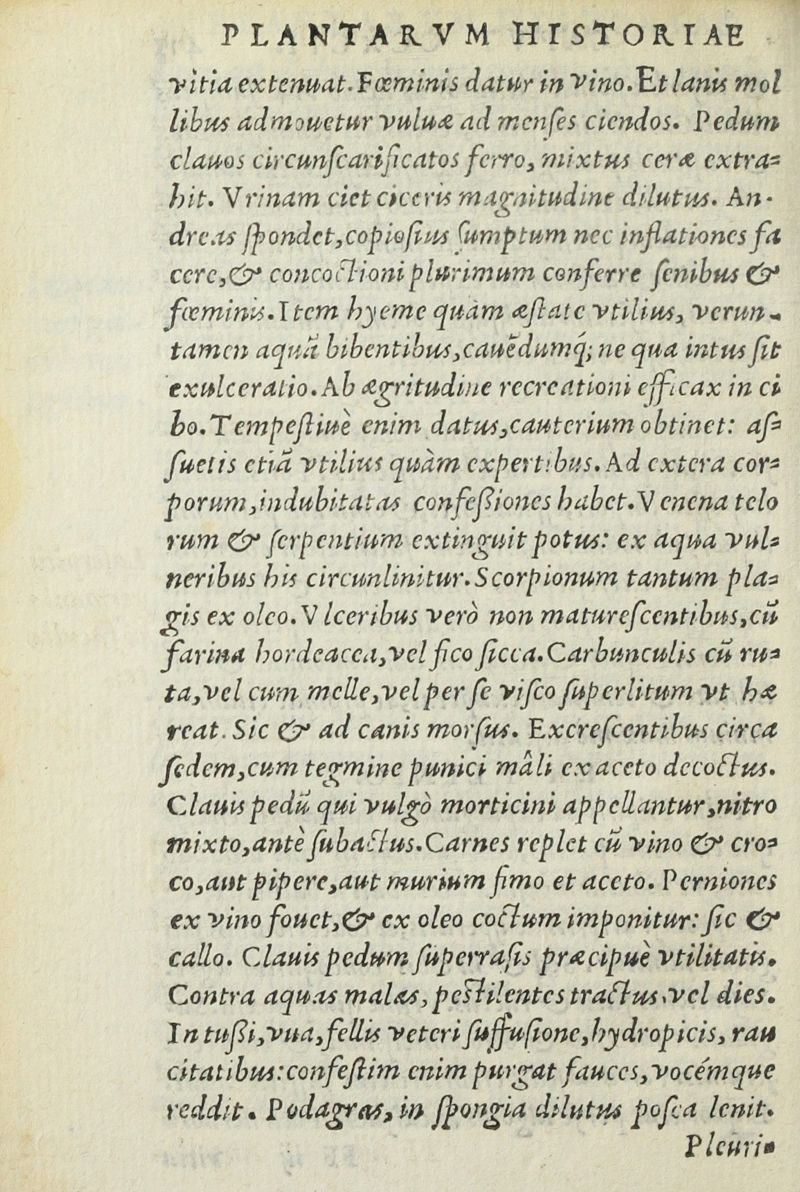 PLANTARVM HISTORIAE
vitia extenuat. Fœminis datur in vino. Et lanis mol
libus admouetur vuluæ ad menſes ciendos. Pedum
clauos circunſcarificatos ferro, mixtus ceræ extra⸗
hit. Vrinam ciet ciceris magnitudine dilutus. An-
dreas ſpondet, copioſius ſumptum nec inflationes fa
cere, & concoctioni plurimum conferre ſenibus &
fœminis. Item hyeme quàm æſtate vtilius, verun-
tamen aquā bibentibus, cauēdumq́; ne qua intus ſit
exulceratio. Ab ægritudine recreationi efficax in ci
bo. Tempeſtiuè enim datus, cauterium obtinet: aſ⸗
ſuetis etiā vtilius quàm expertibus. Ad extera cor⸗
porum, indubitatas confeſsiones habet. Venena telo
rum & ſerpentium extinguit potus: ex aqua vul⸗
neribus his circunlinitur. Scorpionum tantum pla⸗
gis ex oleo. Vlceribus verò non matureſcentibus, cū
farina hordeacea, vel fico ſicca. Carbunculis cū ru⸗
ta, vel cum melle, vel per ſe viſco ſuperlitum vt hæ
reat. Sic & ad canis morſus. Excreſcentibus circa
ſedem, cum tegmine punici mâli ex aceto decoctus.
Clauis pedū qui vulgò morticini appellantur, nitro
mixto, antè ſubactus. Carnes replet cū vino & cro⸗
co, aut pipere, aut murium fimo et aceto. Perniones
ex vino fouet, & ex oleo coctum imponitur: ſic &
callo. Clauis pedum ſuperraſis præcipuè vtilitatis.
Contra aquas malas, peſtilentes tractus, vel dies.
In tuſsi, vua, fellis veteri ſuffuſione, hydropicis, rau
citatibus: confeſtim enim purgat fauces, vocémque
reddit. Podagras, in ſpongia dilutus poſca lenit.
Pleuri⸗